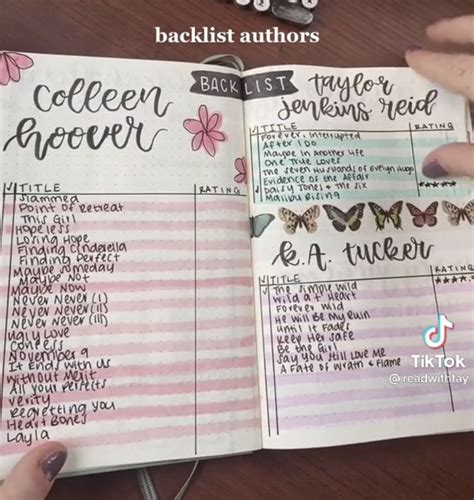 backlist authors
BACK LIST
colleen
hoover
✓ TITLE RATING
Slammed
Point of Retreat
This Girl
Hopeless
Losing Hope
Finding Cinderella
Finding Perfect
Maybe Someday
Maybe Not
Maybe Now
Never Never (I)
Never Never (II)
Never Never (III)
Ugly Love
Confess
November 9
It Ends With Us
Without Merit
All Your Perfects
Verity
Regretting You
Heart Bones
Layla
taylor
jenkins reid
✓ TITLE RATING
Forever, Interrupted
After I Do
Maybe in Another Life
One True Loves
The Seven Husbands of Evelyn Hugo
Evidence of the Affair
✓ Daisy Jones & the Six ★★★★★
Malibu Rising
k.a. tucker
✓ TITLE RATING
✓ The Simple Wild ★★★★
Wild at Heart
Forever Wild
He Will Be My Ruin
Until it Fades
Keep Her Safe
Be the Girl
Say You Still Love Me
A Fate of Wrath & Flame
TikTok
@readwithtay